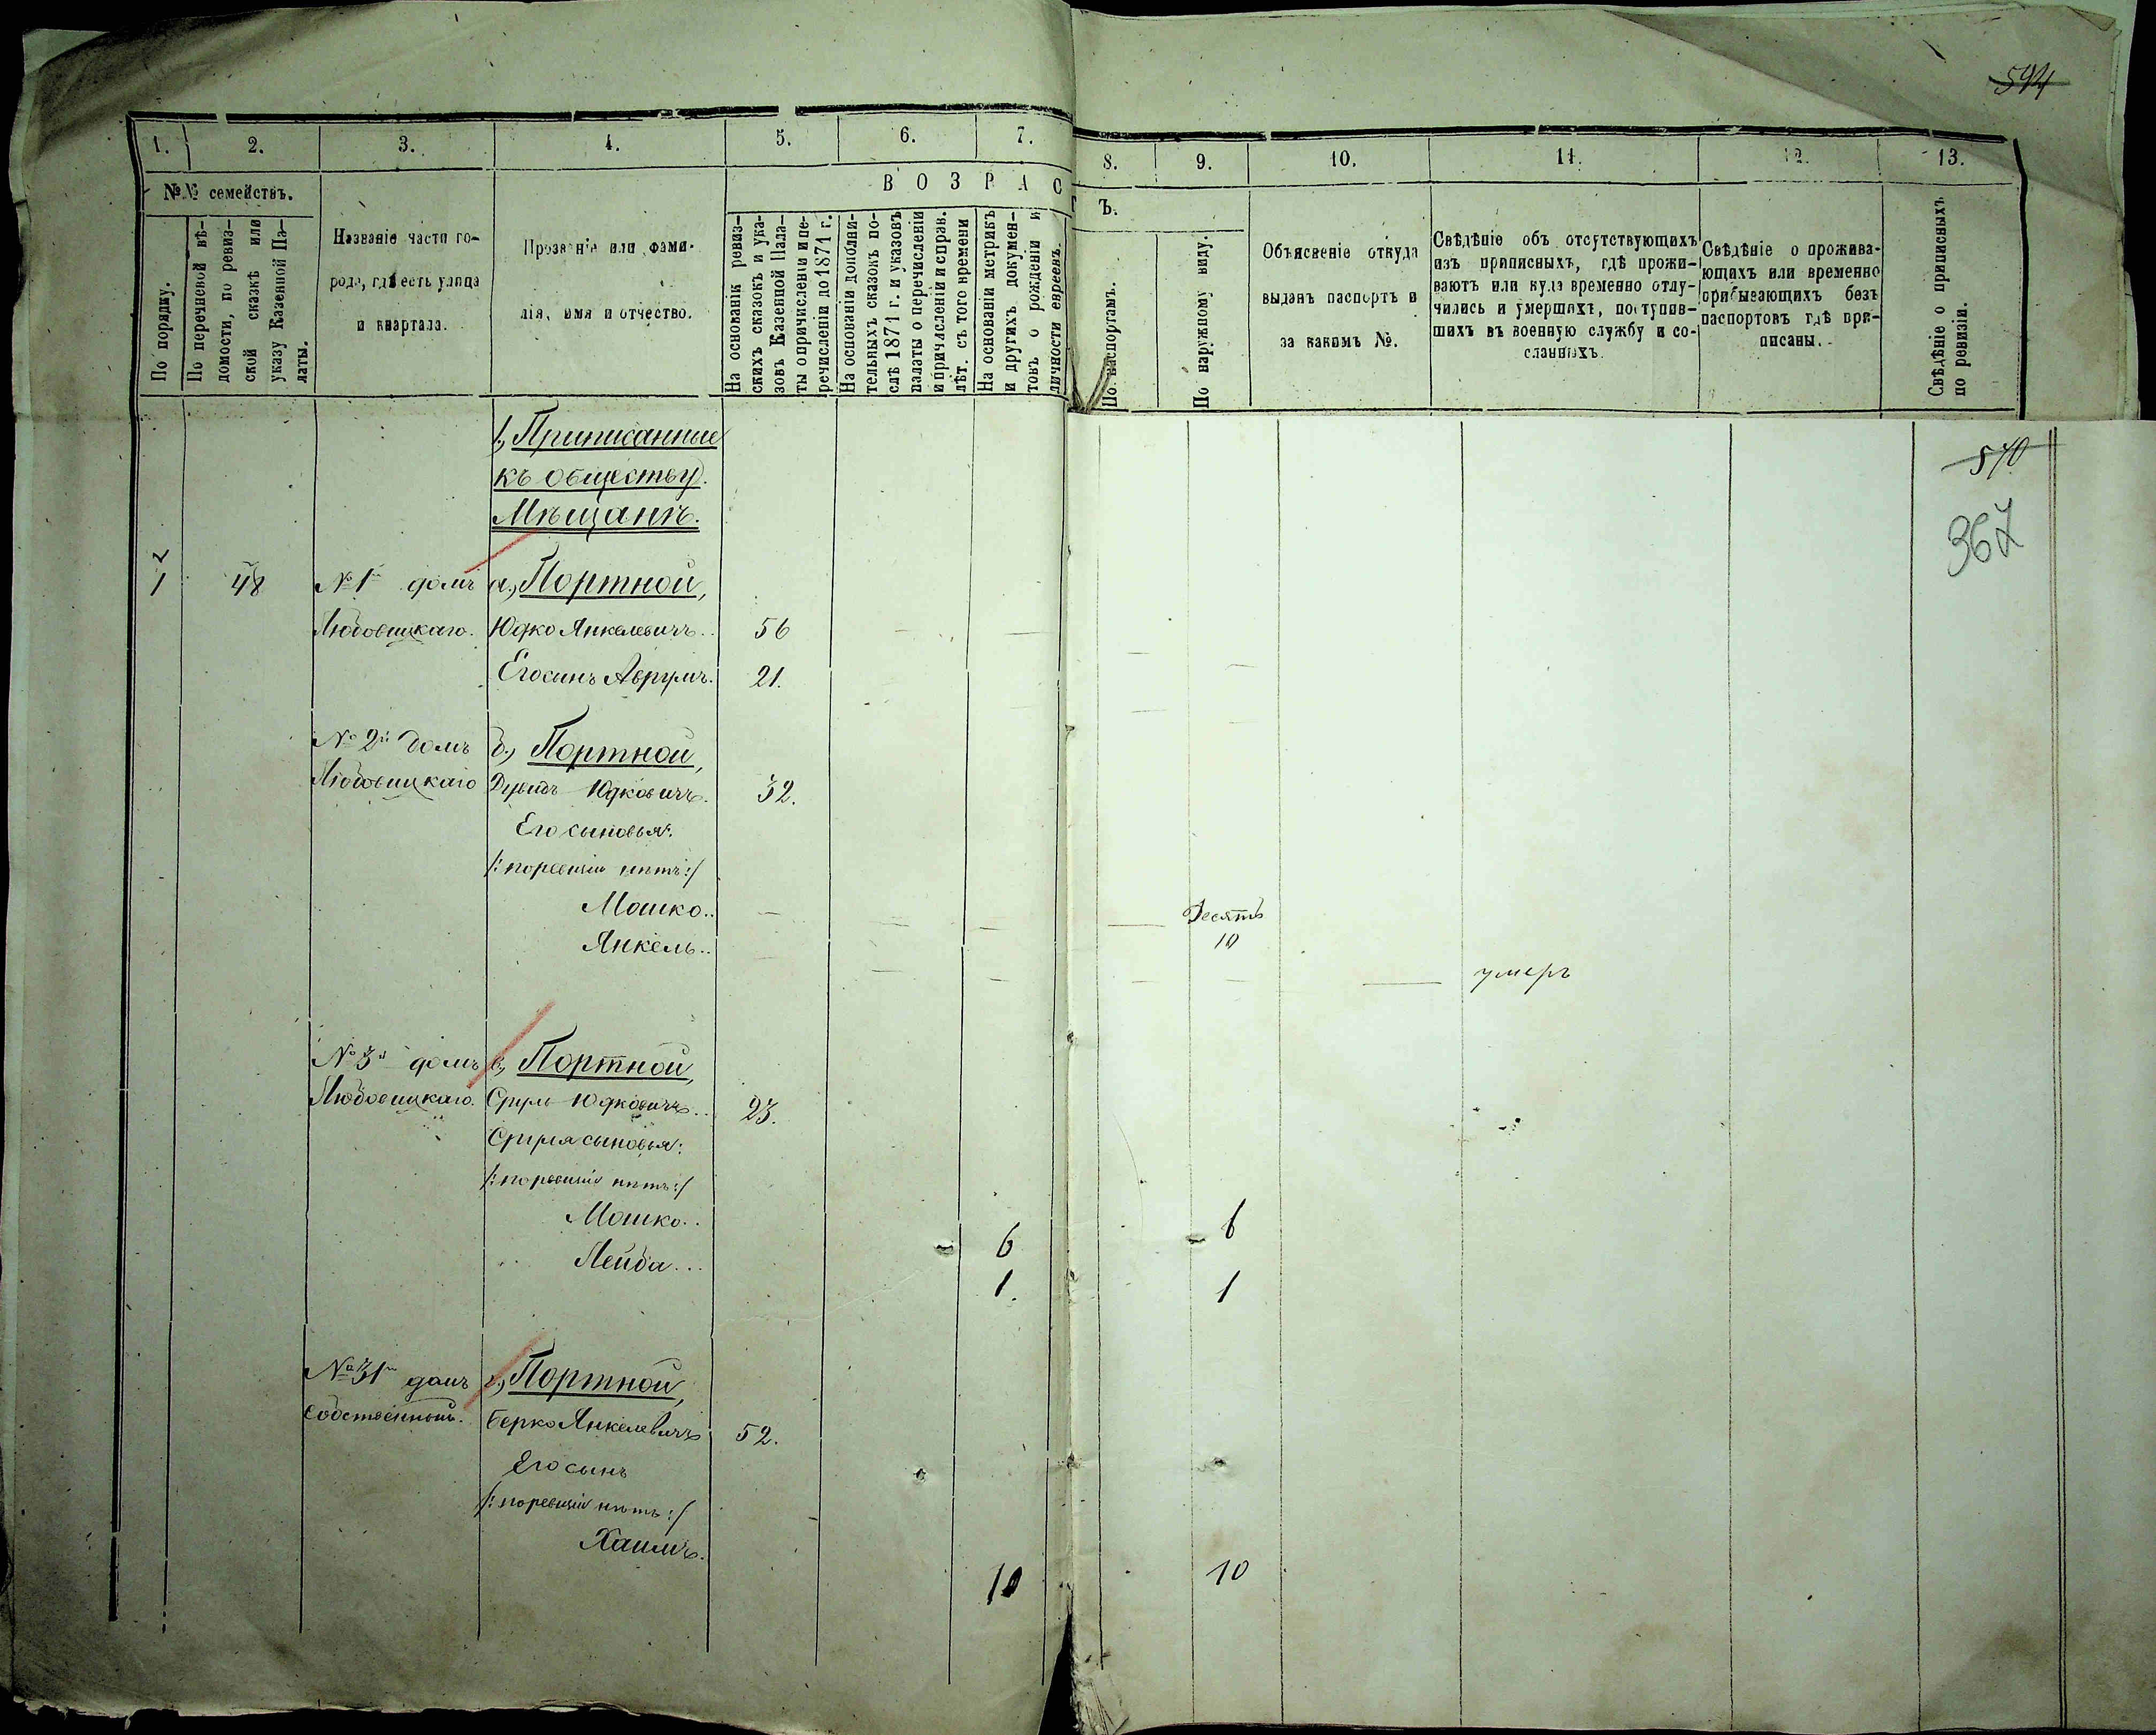 594
1. 2. 3. 4. 5. 6. 7. 8. 9. 10. 11. 12. 13.
№№ семействъ.
По порядку.
По перечневой вѣ-
домости, по ревиз-
ской сказкѣ или
указу Казенной Па-
латы.
Названіе части го-
рода, гдѣ есть улица
и квартала.
Прозваніе или фами-
лія, имя и отчество.
ВОЗРАСТЪ.
На основаніи ревиз-
скихъ сказокъ и ука-
зовъ Казенной Пала-
ты о причисленіи и пе-
речисленіи до 1871 г.
На основаніи дополни-
тельныхъ сказокъ по-
слѣ 1871 г. и указовъ
палаты о перечисленіи
и причисленіи и справ.
лѣт. съ того времени
На основаніи метрикъ
и другихъ докумен-
товъ о рожденіи и
личности евреевъ.
По паспортамъ.
По наружному виду.
Объясненіе откуда
выданъ паспортъ и
за какимъ №.
Свѣдѣніе объ отсутствующихъ
изъ приписныхъ, гдѣ прожи-
ваютъ или куда временно отлу-
чились и умершихъ, поступив-
шихъ въ военную службу и со-
сланныхъ.
Свѣдѣніе о прожива-
ющихъ или временно
прибывающихъ безъ
паспортовъ гдѣ при-
писаны.
Свѣдѣніе о приписныхъ
по ревизіи.
1, Приписанные
къ обществу
Мѣщанъ.
570
367
1 48 №1 домъ а, Портной,
Любовицкаго. Юдко Янкелевичъ.. 56
Его сынъ Аврумъ. 21.
№ 2й домъ б., Портной,
Любовицкаго Дувидъ Юдковичъ. 32.
Его сыновья:
/: по ревизіи нѣтъ :/
Мошко.. Десять
10
Янкель.. умеръ
№ 3й домъ в, Портной,
Любовицкаго. Сруль Юдковичъ.. 23.
Сруля сыновья:
/: по ревизіи нѣтъ :/
Мошко.. 6 6
Лейба... 1. 1
№31 домъ г, Портной,
собственный. Берко Янкелевичъ 52.
Его сынъ
/: по ревизіи нѣтъ :/
Хаимъ. 10 10